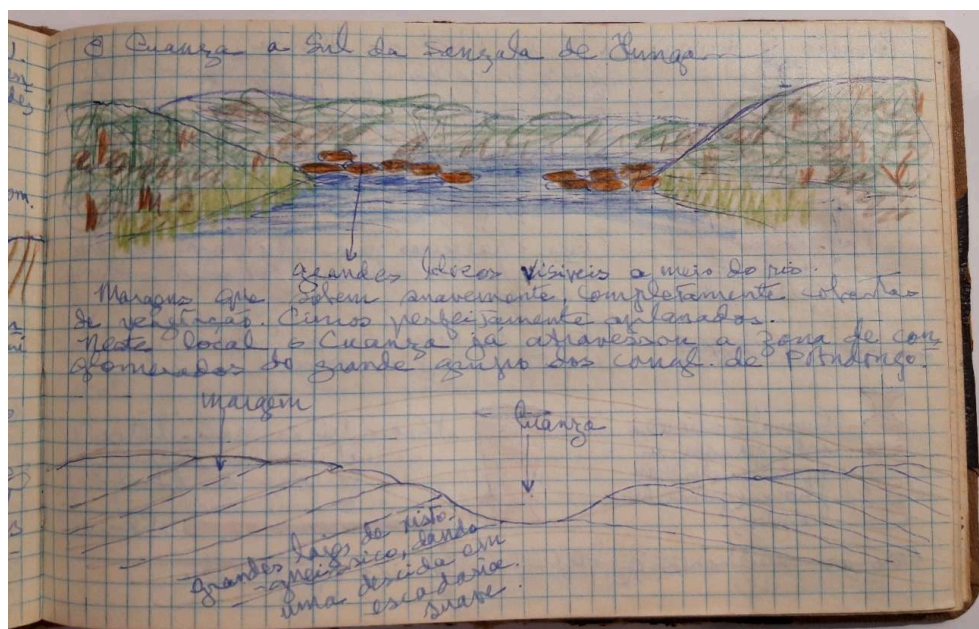 O Cuanza a Sul da Senzala de Hunga
grandes blocos visíveis a meio do rio.
Margens que sobem suavemente, completamente cobertas
de vegetação. Cimos perfeitamente aplanados.
Neste local, o Cuanza já atravessou a zona de con
glomerados do grande grupo dos congl. de P. Andongo.
margem
Cuanza
grandes lajes do xisto-
-gneissico, dando
uma descida em
escadaria
suave.